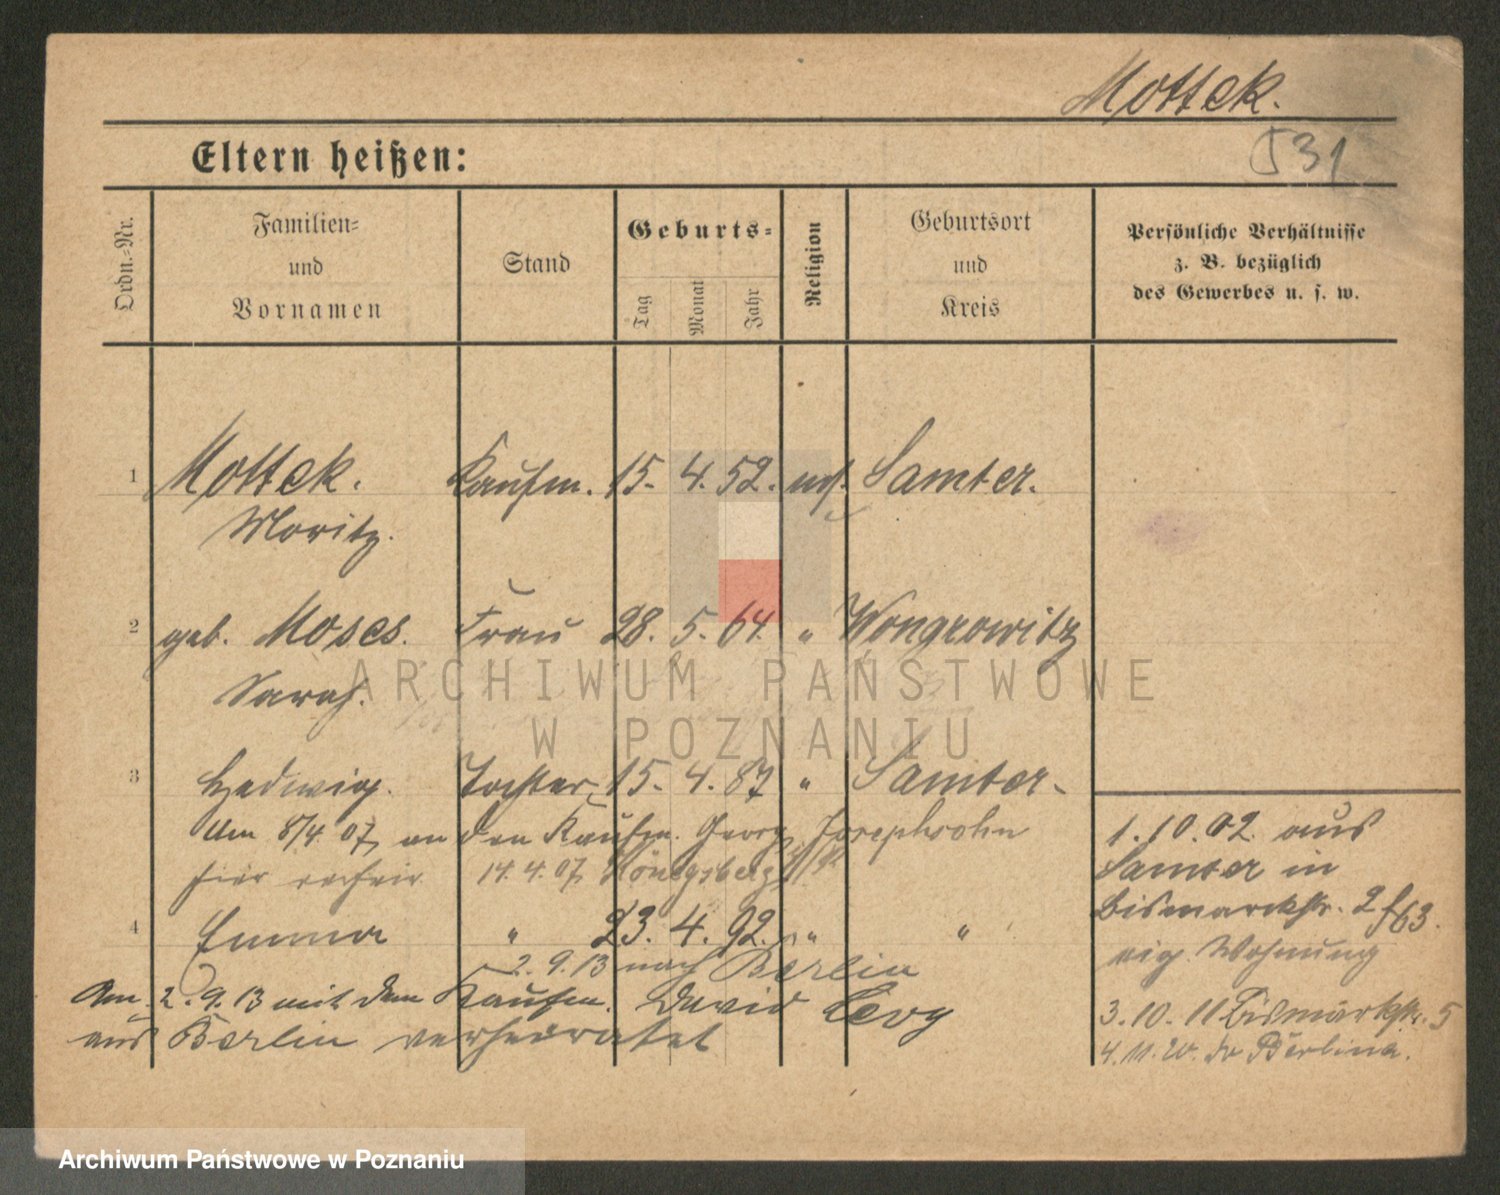 Mottek.
531
Eltern heißen:
Ordn.-Nr.
Familien-
und
Vornamen
Stand
Geburts-
Tag
Monat
Jahr
Religion
Geburtsort
und
Kreis
Persönliche Verhältnisse
z. B. bezüglich
des Gewerbes u. s. w.
1 Mottek. Kaufm. 15. 4. 52. mos. Samter.
Moritz.
2 geb. Moses. Frau 28. 5. 64. " Wongrowitz
Sarah.
3 Hedwig. Tochter 15. 4. 87 " Samter.
Am 8/4 07 an den Kaufm. Georg Josephsohn
hier 14.4.07 Königsberg
4 Emma " 23. 4. 92. " "
2.9.13 nach Berlin
Am 2.9.13 mit dem Kaufm. David Levy
aus Berlin verheiratet
1.10.02 aus
Samter in
Bismarckstr. 2
eig. Wohnung
3.10.11 Bismarckstr. 5
4.11.20. Berlin
ARCHIWUM PAŃSTWOWE
W POZNANIU
Archiwum Państwowe w Poznaniu